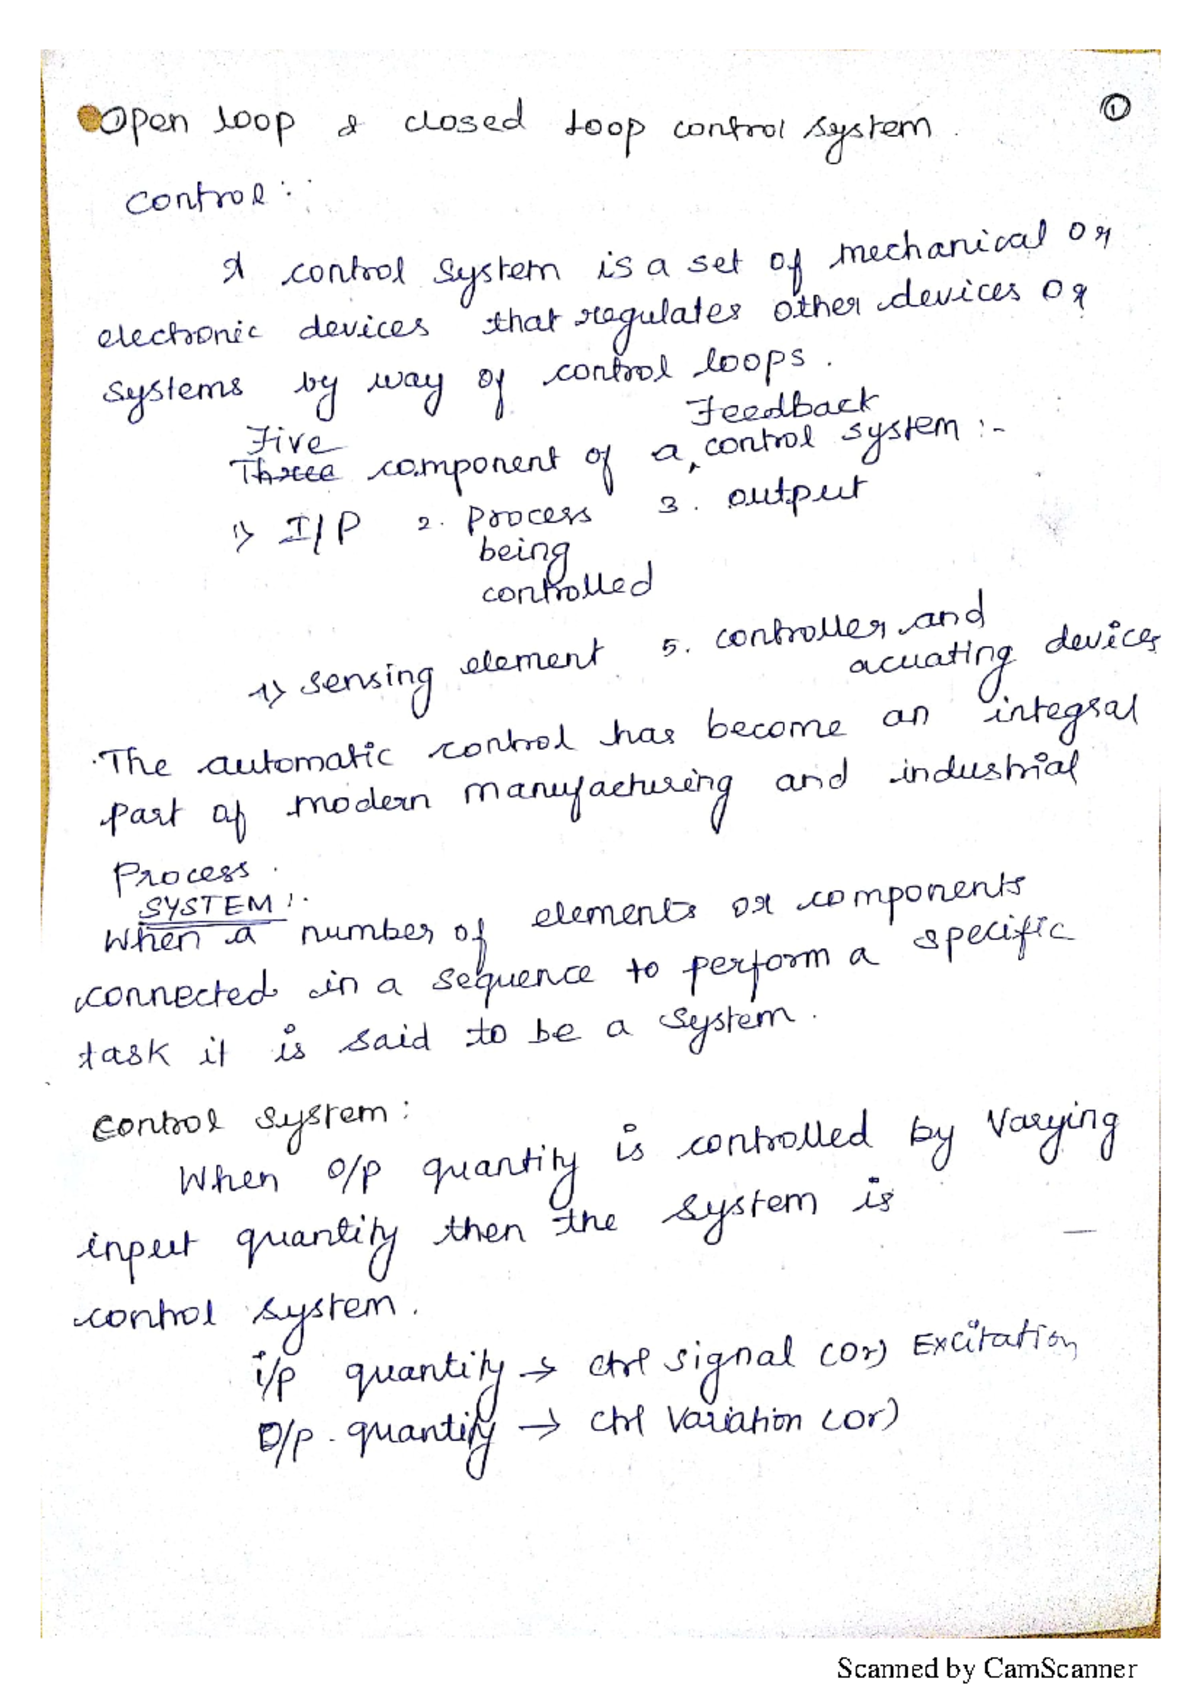 Open loop & closed loop control system.
①
control:
A control system is a set of mechanical or
electronic devices that regulates other devices or
systems by way of control loops.
Feedback
Five
Three component of a control system :-
1) I/P 2. Process 3. output
being
controlled
4) sensing element 5. controller and
acuating devices
The automatic control has become an integral
part of modern manufacturing and industrial
Process.
SYSTEM:
When a number of elements or components
connected in a sequence to perform a specific
task it is said to be a system.
control system:
When O/p quantity is controlled by varying
input quantity then the system is
control system.
i/p quantity → ctrl signal (or) Excitation
O/p. quantity → ctrl variation (or)
Scanned by CamScanner